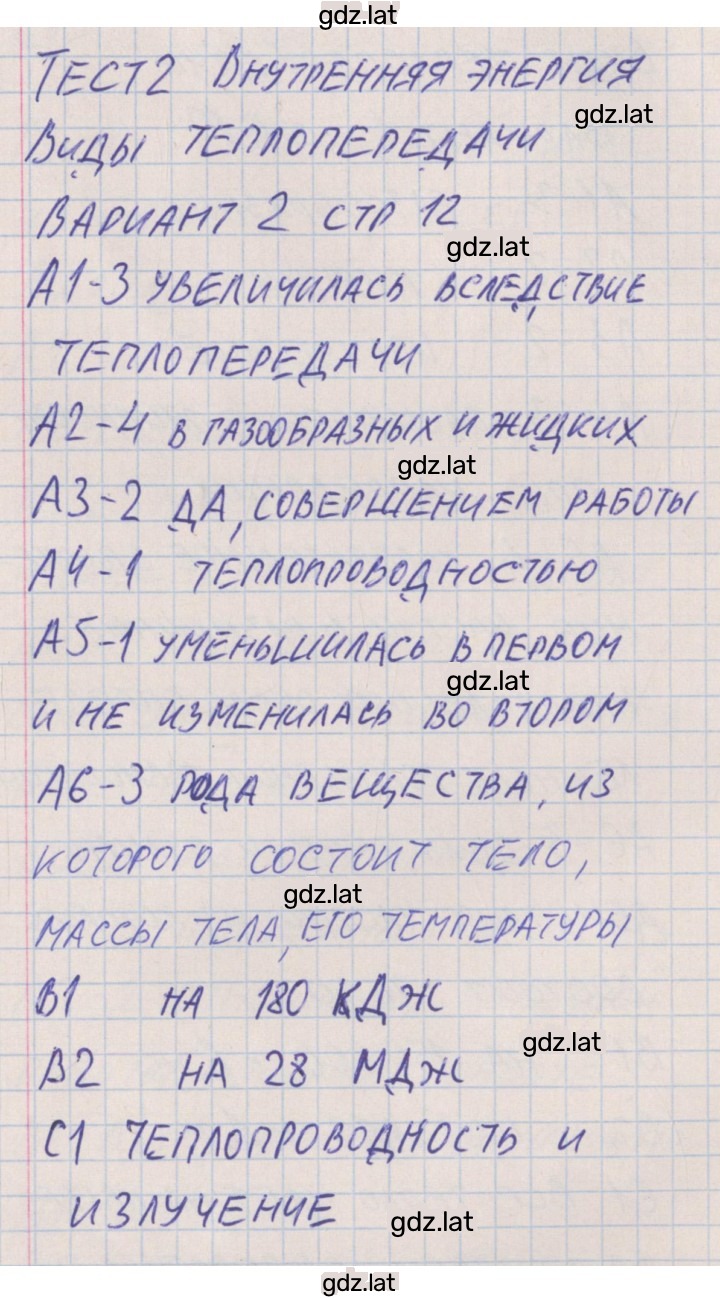 gdz.lat
ТЕСТ 2 ВНУТРЕННЯЯ ЭНЕРГИЯ
gdz.lat
ВИДЫ ТЕПЛОПЕРЕДАЧИ
ВАРИАНТ 2 СТР 12
gdz.lat
А1-3 УВЕЛИЧИЛАСЬ ВСЛЕДСТВИЕ
ТЕПЛОПЕРЕДАЧИ
А2-4 В ГАЗООБРАЗНЫХ И ЖИДКИХ
gdz.lat
А3-2 ДА, СОВЕРШЕНИЕМ РАБОТЫ
А4-1 ТЕПЛОПРОВОДНОСТЬЮ
А5-1 УМЕНЬШИЛАСЬ В ПЕРВОМ
gdz.lat
И НЕ ИЗМЕНИЛАСЬ ВО ВТОРОМ
А6-3 РОДА ВЕЩЕСТВА, ИЗ
КОТОРОГО СОСТОИТ ТЕЛО,
gdz.lat
МАССЫ ТЕЛА, ЕГО ТЕМПЕРАТУРЫ
В1 НА 180 КДЖ
gdz.lat
В2 НА 28 МДЖ
С1 ТЕПЛОПРОВОДНОСТЬ И
ИЗЛУЧЕНИЕ
gdz.lat
gdz.lat